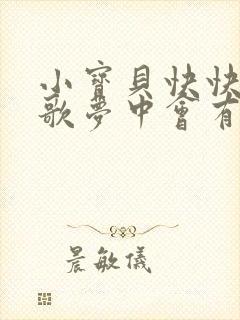 小寶貝快快
歌夢中會有
晨敏儀